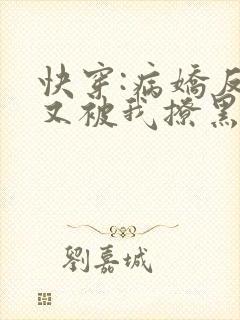 快穿:病娇反
又被我撩黑
劉嘉城